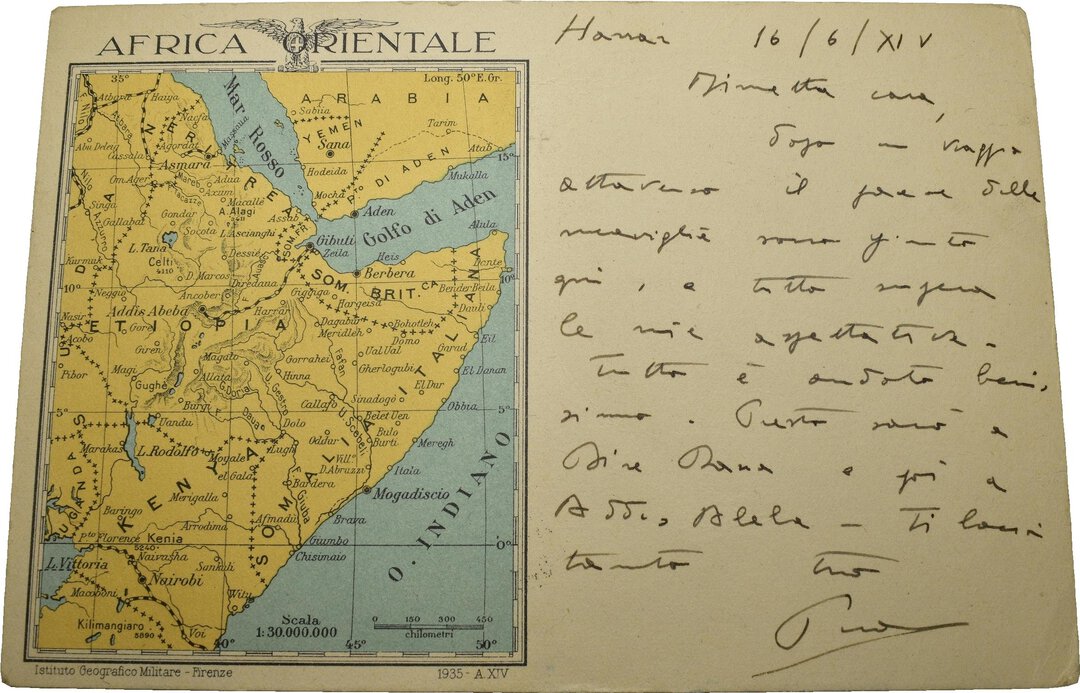 AFRICA ORIENTALE
35° Long. 50° E.Gr.
Mar Rosso
ARABIA
YEMEN
Sobiia
Tarim
Sana
Atbara Haiya
Nacfa
Massaua
ERITREA
Abu Deleig
Cassala
Agordat
Asmara
Hodeida
Pto DI ADEN
Atab
15°
Mukalla
Om Ager
Mareb
Adua
Axum
Macallè
Mocha
Nilo Azzurro
Singa
Gallabat
Gondar
Tacazzè
A. Alagi
3411
Assab
Aden
Golfo di Aden
Socota
L. Ascianghi
SOM. FR.
Gibuti
Zeila
Alula
L. Tana
Celti
4110
Dessiè
Heis
Berbera
Dante
Kurmuk
D. Marcos
SOM. BRIT.CA
10°
Neggio
Ancober
Diredaua
Giggiga
Hargeisa
Bender Beila
Dauli
Nasir
Addis Abeba
Harrar
ETIOPIA
Gore
Dagabur
Meridleh
Bohotleh
Acobo
Domo
Garad
Eil
Giren
Magalo
Gorrahei
Ual Ual
Gherlogubi
Pibor
Magi
Allata
Hinna
El Danan
Gughè
Ginoria
El Dur
Sinadogo
Burgi
U. Gestro
Callafo
U. Scebeli
Obbia
5°
Uandu
Daua
Dolo
Belet Uen
Bulo Burti
Marakas
L. Rodolfo
Moyale
Lugh
Oddur
Meregh
el Gala
Vill.o D. Abruzzi
UGANDA
Itala
KENYA
Merigalla
Bardera
SOMALIA ITALIANA
Mogadiscio
Baringo
Arrodima
Afmadù
Giuba
Brava
Pto Florence
Kenia
5240
Giumbo
0°
Chisimaio
O. INDIANO
L. Vittoria
Naivasha
Sankuli
Nairobi
Macoboni
Witu
Kilimangiaro
5890
Voi
Scala
1:30.000.000
0 150 300 450
chilometri
40° 45° 50°
Istituto Geografico Militare - Firenze 1935 - A.XIV
Harrar 16/6/XIV
Mimetta cara,
dopo un viaggio
attraverso il paese delle
meraviglie sono giunto
qui, e tutto supera
le mie aspettative.
Tutto è andato benis-
simo. Presto sarò a
Dire Daua e poi a
Addis Abeba — ti bacia
tanto tuo